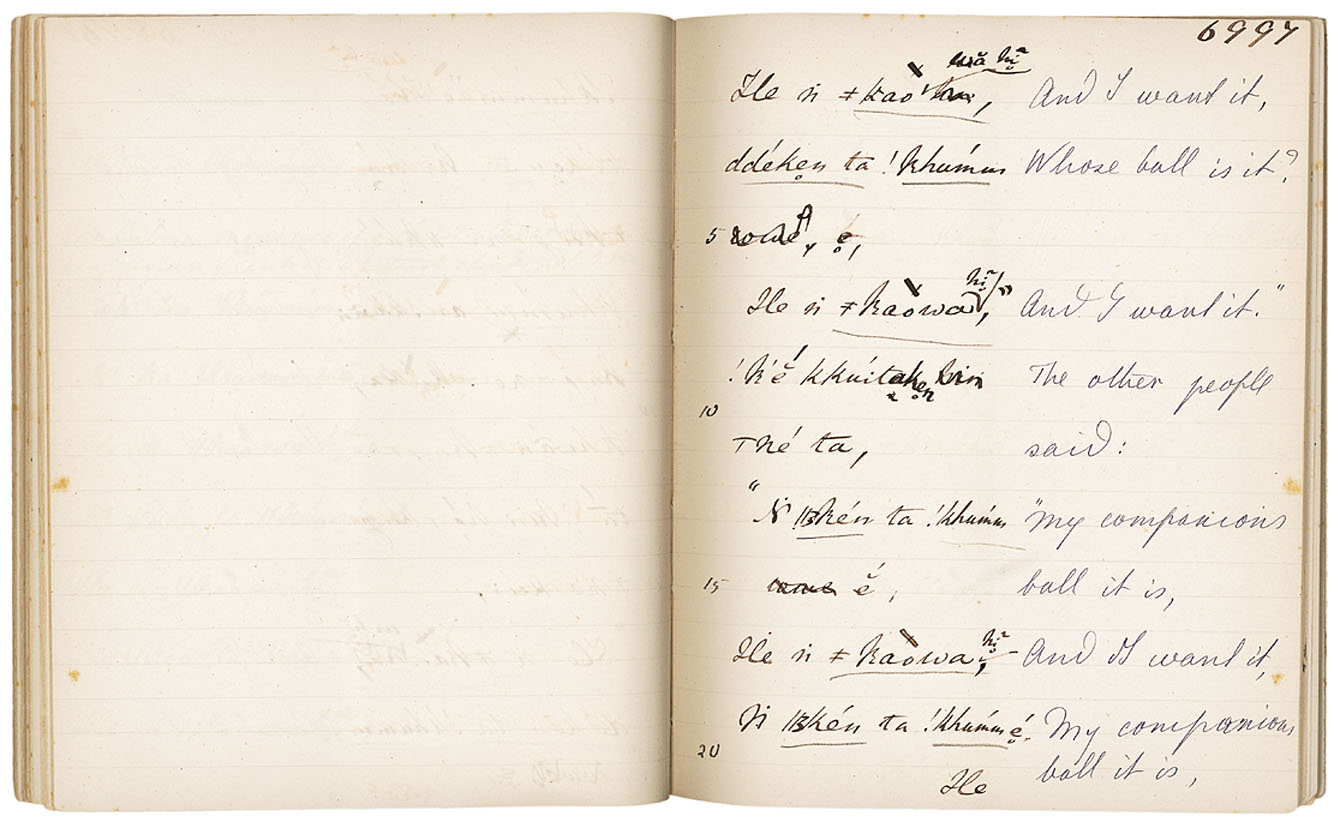 6997
He n ǂkao wa hi, And I want it,
ddéken ta !khumm Whose ball is it?
5 é,
He n ǂkaowa hi," And I want it."
!k'é kkúitaken The other people
10
né ta, said:
"N kén ta !khumm "My companions
15 é, ball it is,
He n ǂkaowa hi, And I want it,
N kén ta !khumm é. My companions
20 ball it is,
He